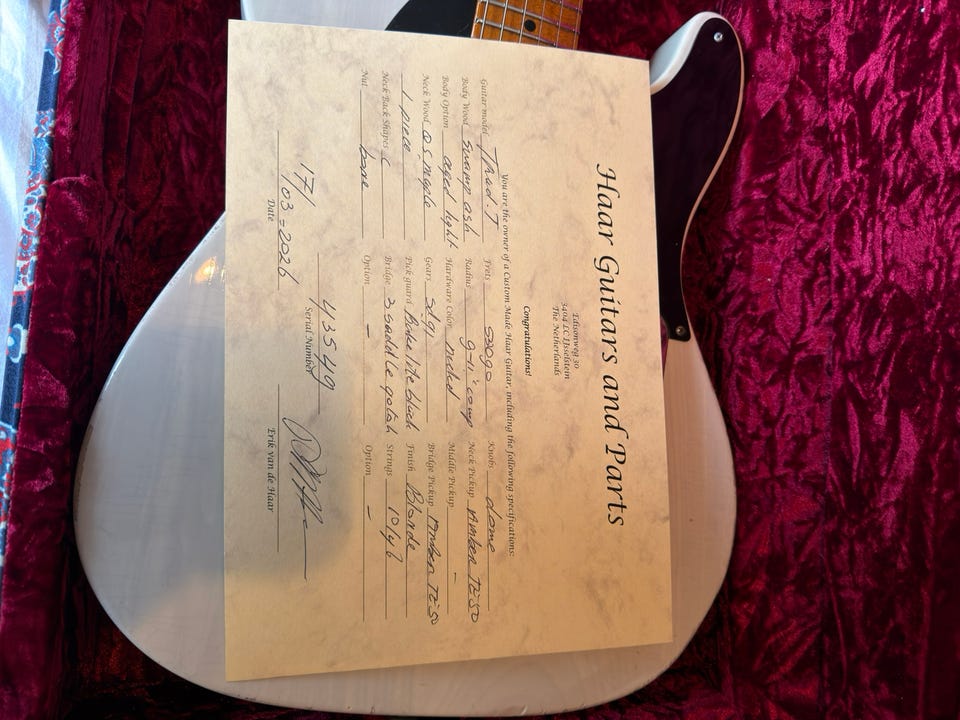 Haar Guitars and Parts
Edisonweg 30
3404 LC IJsselstein
The Netherlands
Congratulations!
You are the owner of a Custom Made Haar Guitar, including the following specifications:
Guitar model Trad. T
Body Wood Swamp ash
Body Option aged light
Neck Wood QS maple
1 piece
Neck Back Shapes C
Nut bone
Frets S5090
Radius 9-11" comp
Hardware Color nickel
Gears sd91
Pick guard Bakelite black
Bridge 3 saddle Gotoh
Option -
Knobs dome
Neck Pickup Amber Te:50
Middle Pickup -
Bridge Pickup Amber Te:50
Finish Blonde
Strings 10/46
Option -
17/03-2026
Date
43549
Serial Number
Erik van de Haar